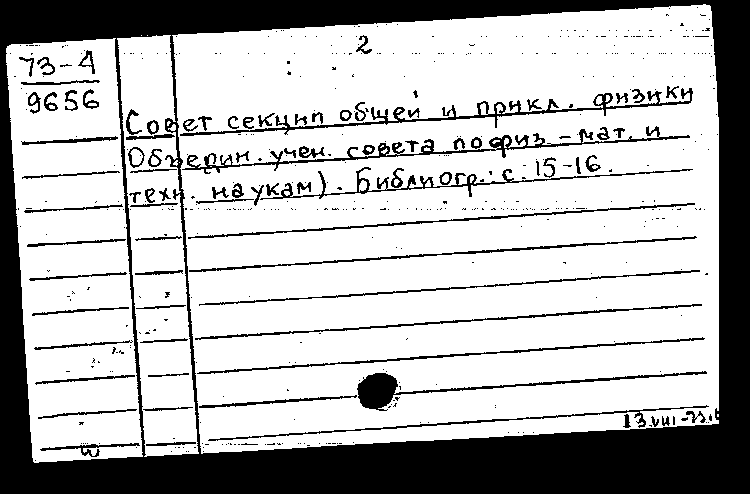 73-4
9656
2
Совет секции общей и прикл. физики
Объедин. учен. совета по физ-мат. и
техн. наукам). Библиогр.: с. 15-16.
13.VIII-73.